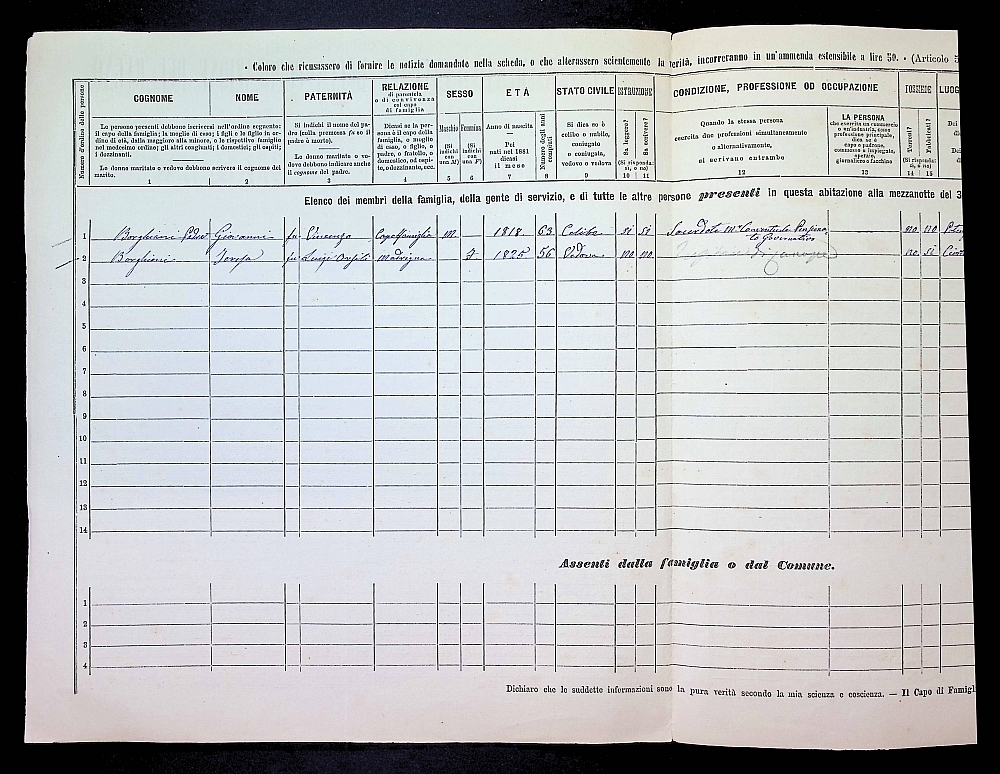 · Coloro che ricusassero di fornire le notizie domandate nella scheda, o che alterassero scientemente la verità, incorreranno in un'ammenda estensibile a lire 50. · (Articolo 5
Numero d'ordine delle persone
COGNOME
NOME
Le persone presenti debbono iscriversi nell'ordine seguente: il capo della famiglia; la moglie di esso; i figli e le figlie in ordine di età, dalla maggiore alla minore, e le rispettive famiglie nel medesimo ordine; gli altri congiunti; i domestici; gli ospiti; i dozzinanti.
Le donne maritate o vedove debbono scrivere il cognome del marito.
1
2
PATERNITÀ
Si indichi il nome del padre (colla premessa fu se il padre è morto).
Le donne maritate o vedove debbono indicare anche il cognome del padre.
3
RELAZIONE
di parentela
o di convivenza
col capo
di famiglia
Dicasi se la persona è il capo della famiglia, o moglie di esso, o figlio, o padre, o fratello, o domestico, od ospite, o dozzinante, ecc.
4
SESSO
Maschio
Femmina
(Si indichi con una M)
(Si indichi con una F)
5
6
ETÀ
Anno di nascita
—
Pei nati nel 1881 dicasi il mese
7
Numero degli anni compiuti
8
STATO CIVILE
Si dica se è celibe o nubile, coniugato o coniugata, vedovo o vedova
9
ISTRUZIONE
Sa leggere?
Sa scrivere?
(Si risponda: sì, o no)
10
11
CONDIZIONE, PROFESSIONE OD OCCUPAZIONE
Quando la stessa persona
esercita due professioni simultaneamente
o alternativamente,
si scrivano entrambe
12
LA PERSONA
che esercita un commercio
o un'industria, come
professione principale,
dica se è
capo o padrone,
commesso o impiegato,
operaio,
giornaliero o facchino
13
POSSIEDE
Terreni?
Fabbricati?
(Si risponda: sì, o no)
14
15
LUOG
Dei
Elenco dei membri della famiglia, della gente di servizio, e di tutte le altre persone presenti in questa abitazione alla mezzanotte del 3
1 Borghiani Giovanni fu Vincenzo Capo famiglia M — 1818 63 Celibe si si Sacerdote no no
2 Borghiani fu Luigi Matrigna F 1825 56 Vedova no no no si
3
4
5
6
7
8
9
10
11
12
13
14
Assenti dalla famiglia o dal Comune.
1
2
3
4
Dichiaro che le suddette informazioni sono la pura verità secondo la mia scienza e coscienza. — Il Capo di Famigl